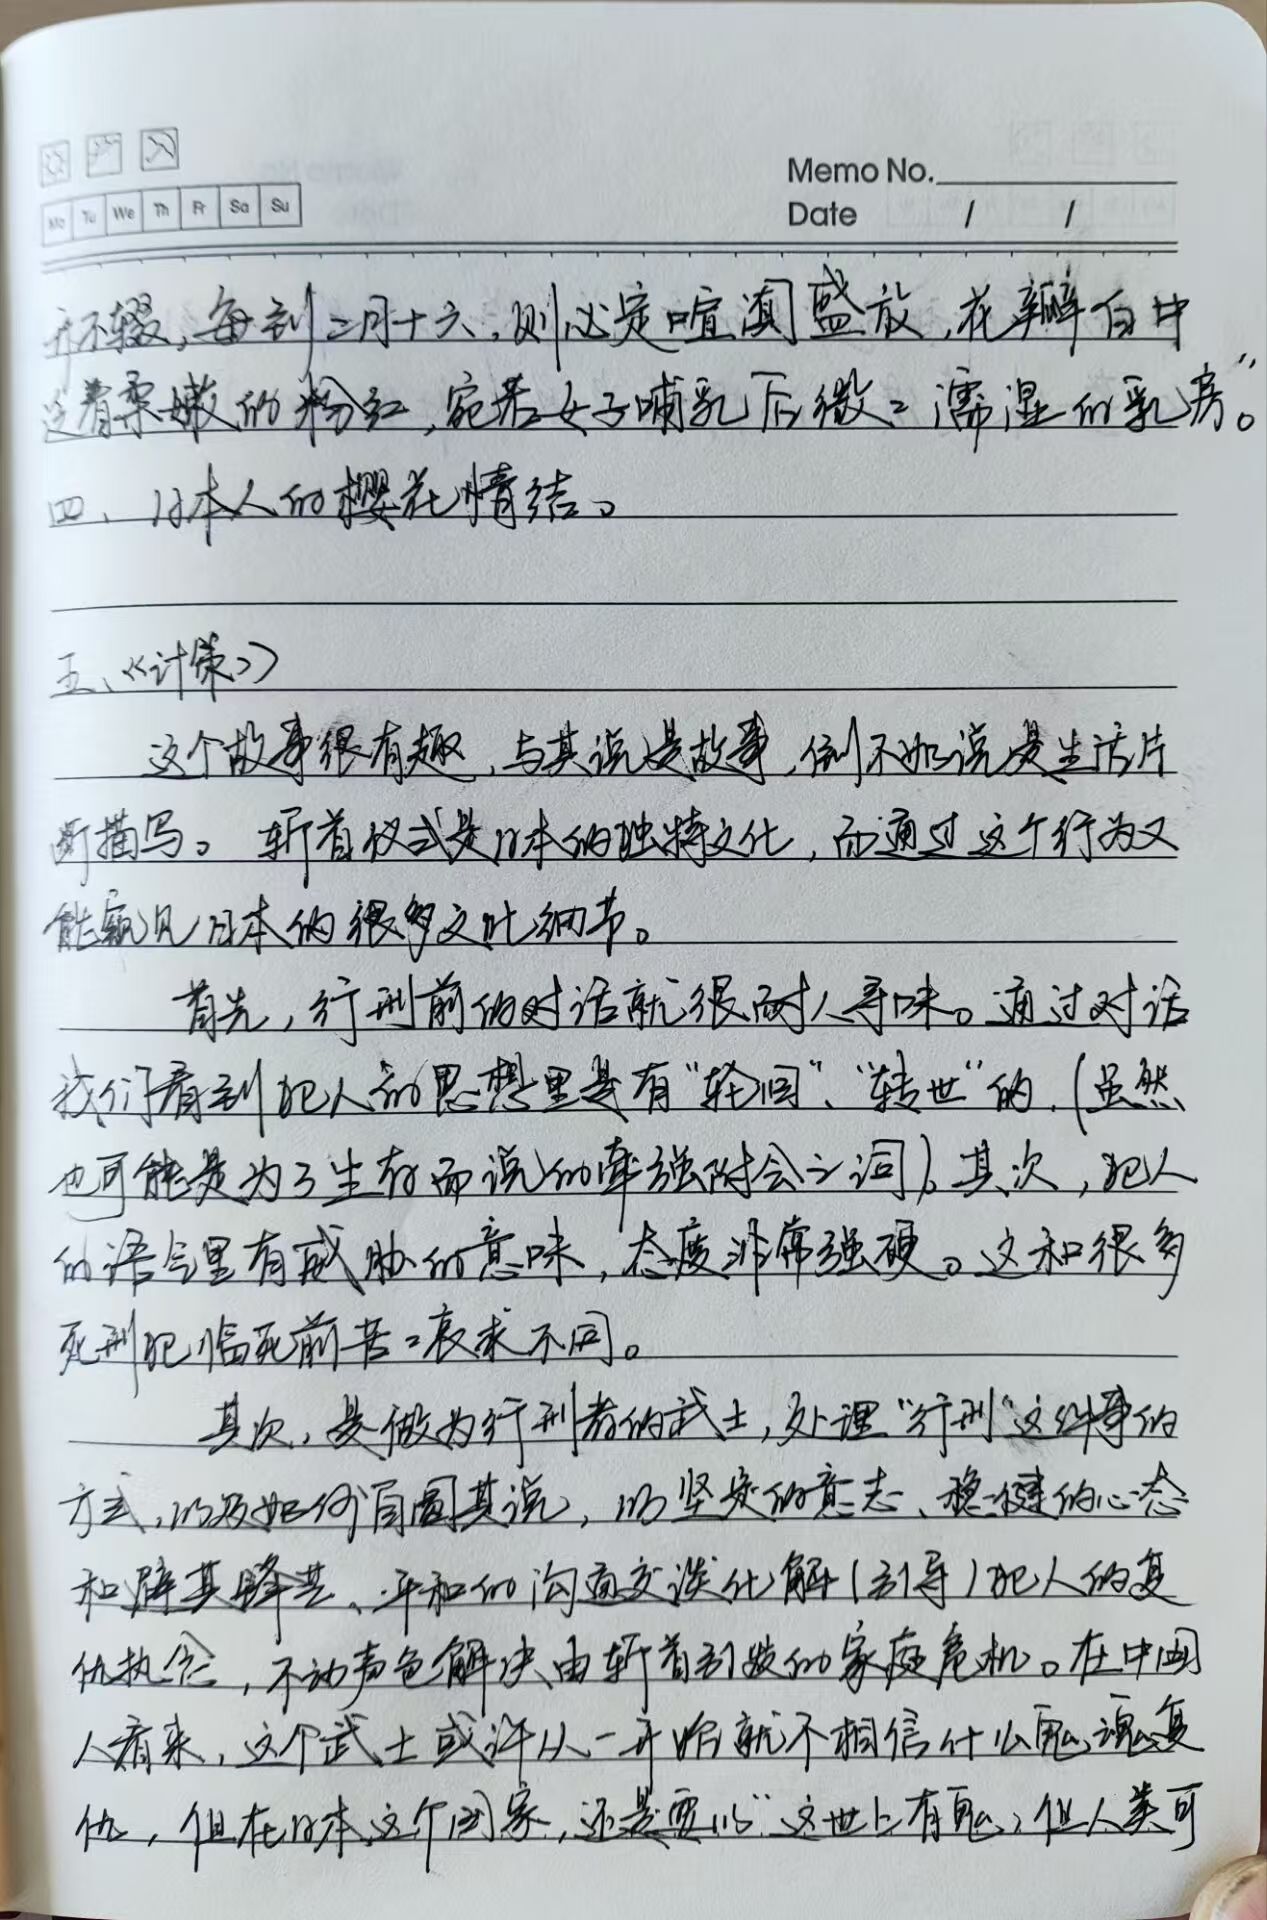 Mo Tu We Th Fr Sa Su
Memo No.
Date / /
开不辍，每到二月十六，则必定喧阗盛放，花瓣白中
透着柔嫩的粉红，宛若女子哺乳后微々濡湿的乳房”。
四、日本人的樱花情结。
五、《计策》
这个故事很有趣，与其说是故事，倒不如说是生活片
断描写。斩首仪式是日本的独特文化，而通过这个行为又
能窥见日本的很多文化细节。
首先，行刑前的对话就很耐人寻味。通过对话
我们看到犯人的思想里是有“轮回”、“转世”的，(虽然
也可能是为了生存而说的牵强附会之词)。其次，犯人
的语气里有威胁的意味，态度非常强硬。这和很多
死刑犯临死前苦々哀求不同。
其次，是做为行刑者的武士，处理“行刑”这件事的
方式，以及如何自圆其说，以坚定的意志、稳健的心态
和避其锋芒、平和的沟通交谈化解(引导)犯人的复
仇执念，不动声色解决由斩首引发的家庭危机。在中国
人看来，这个武士或许从一开始就不相信什么鬼魂复
仇，但在日本这个国家，还是要以“这世上有鬼，但人类可